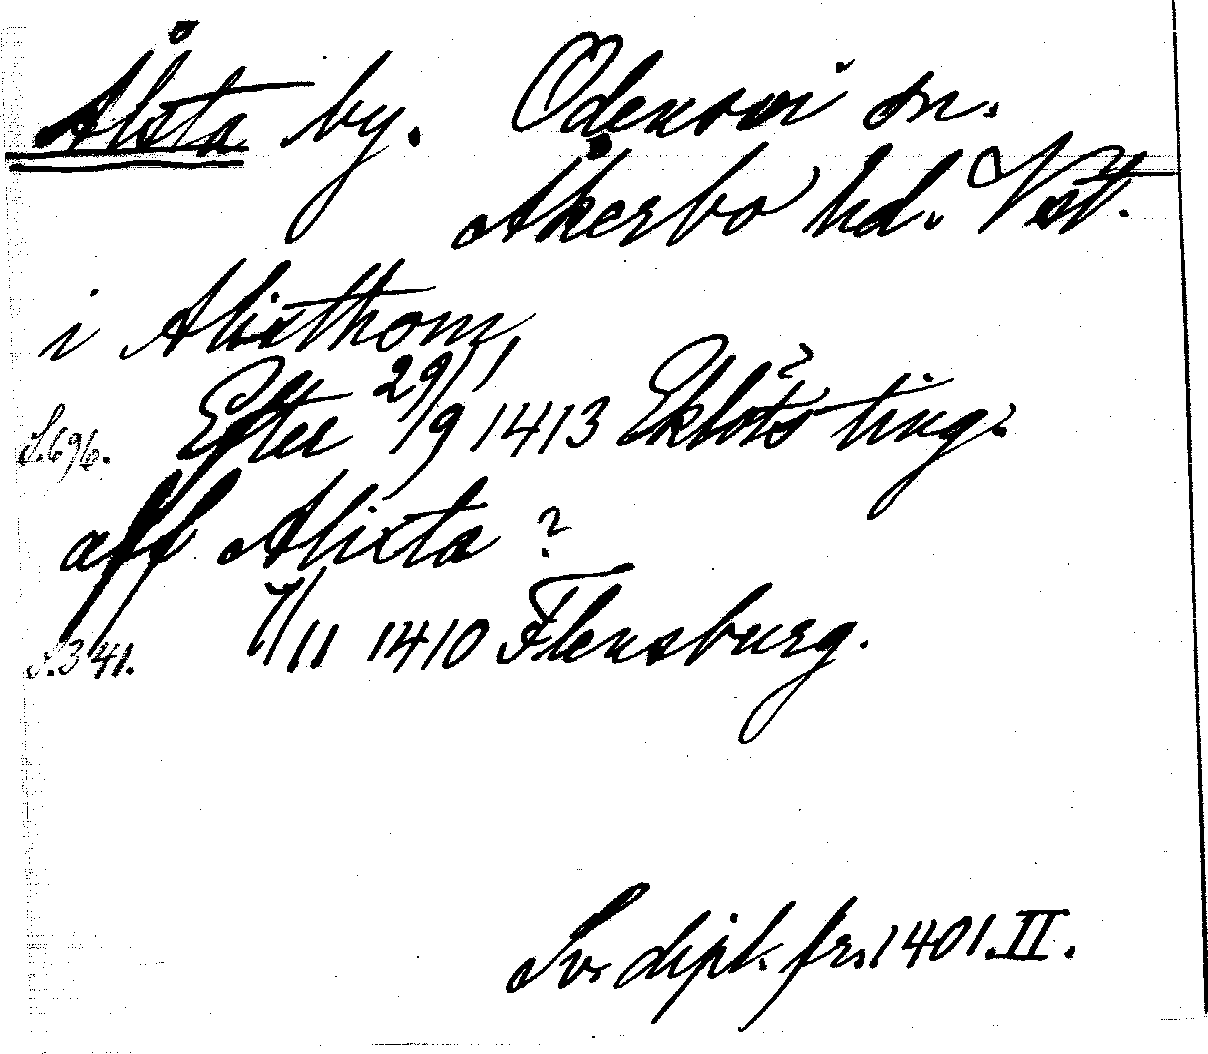 Ålsta by. Odensvi sn.
Åkerbo hd. Vst.
i Alixthom
S. 696. Efter 29/9 1413 Eklösts? ting.
aff Alixta?
S. 341. 7/11 1410 Flensburg.
Sv. dipl. fr. 1401. II.